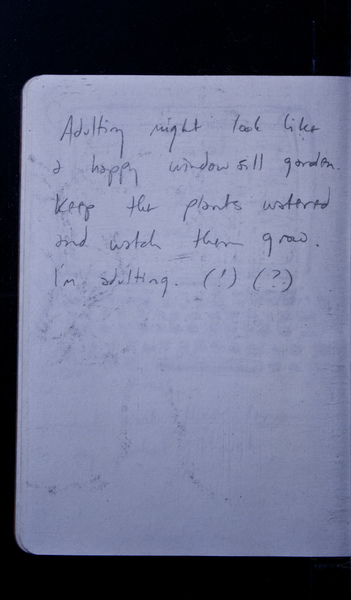 Adulting might look like
a happy windowsill garden.
Keep the plants watered
and watch them grow.
I'm adulting. (!) (?)